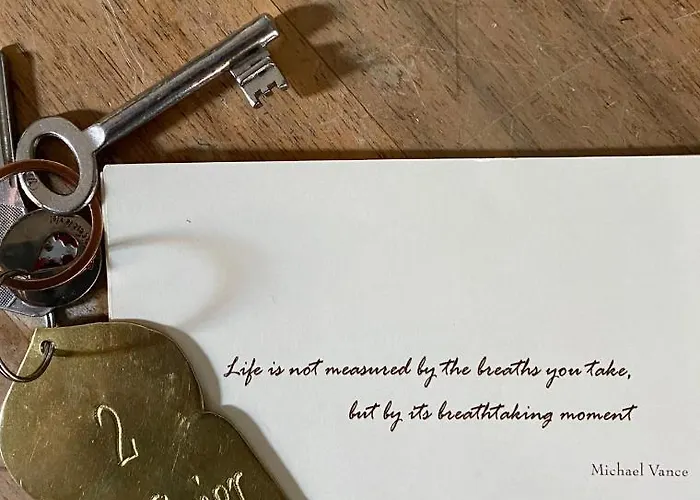 Life is not measured by the breaths you take,
but by its breathtaking moment
Michael Vance
2